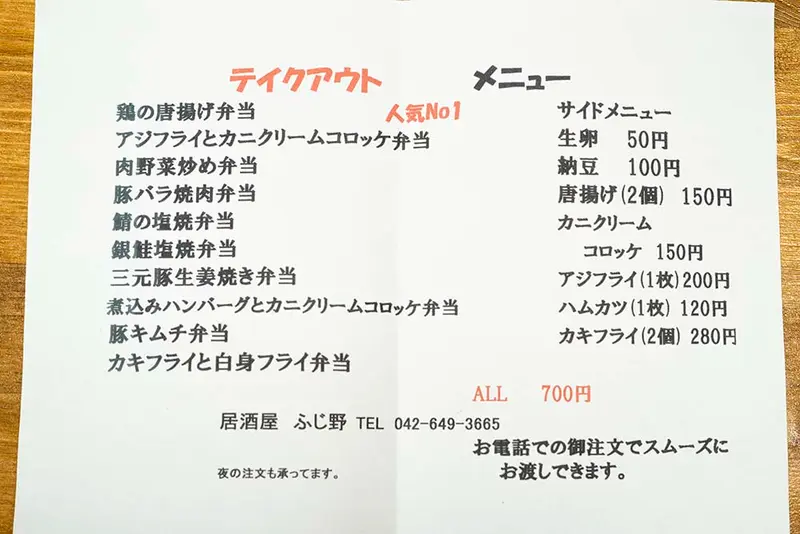 テイクアウト メニュー
鶏の唐揚げ弁当 人気No1
アジフライとカニクリームコロッケ弁当
肉野菜炒め弁当
豚バラ焼肉弁当
鯖の塩焼弁当
銀鮭塩焼弁当
三元豚生姜焼き弁当
煮込みハンバーグとカニクリームコロッケ弁当
豚キムチ弁当
カキフライと白身フライ弁当
サイドメニュー
生卵 50円
納豆 100円
唐揚げ(2個) 150円
カニクリーム
コロッケ 150円
アジフライ(1枚)200円
ハムカツ(1枚) 120円
カキフライ(2個) 280円
ALL 700円
居酒屋 ふじ野 TEL 042-649-3665
お電話での御注文でスムーズに
お渡しできます。
夜の注文も承ってます。